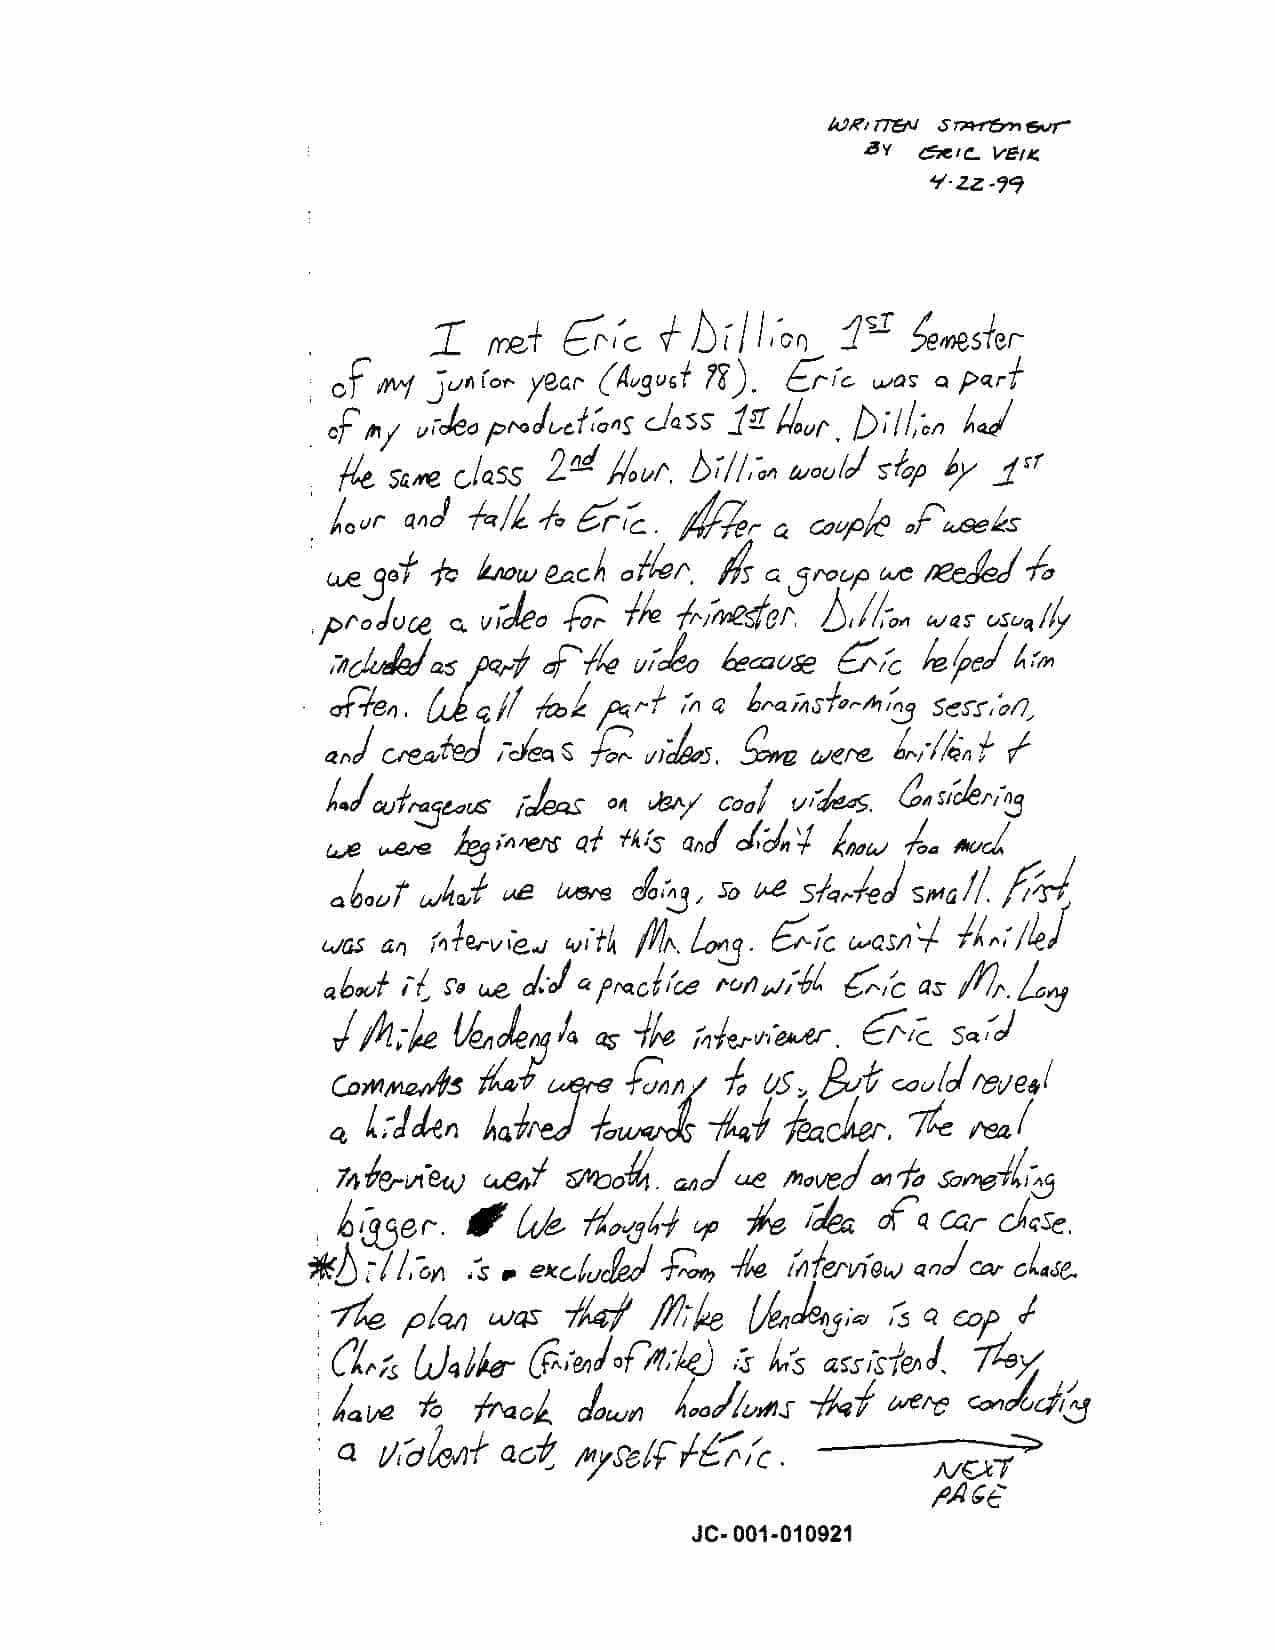 WRITTEN STATEMENT
BY ERIC VEIK
4-22-99
I met Eric + Dillion 1ST Semester
of my junior year (August 98). Eric was a part
of my video productions class 1ST Hour. Dillion had
the same class 2nd Hour. Dillion would stop by 1ST
hour and talk to Eric. After a couple of weeks
we got to know each other. As a group we needed to
produce a video for the trimester. Dillion was usually
included as part of the video because Eric helped him
often. We all took part in a brainstorming session,
and created ideas for videos. Some were brillant +
had outrageous ideas on very cool videos. Considering
we were beginners at this and didn't know too much
about what we were doing, so we started small. First,
was an interview with Mr. Long. Eric wasn't thrilled
about it, so we did a practice run with Eric as Mr. Long
+ Mike Vendengla as the interviewer. Eric said
comments that were funny to us, But could reveal
a hidden hatred towards that teacher. The real
Interview went smooth. and we moved onto something
bigger. We thought up the idea of a car chase.
*Dillion is excluded from the interview and car chase.
The plan was that Mike Vendengia is a cop +
Chris Walker (friend of Mike) is his assistend. They
have to track down hoodlums that were conducting
a violent act, myself + Eric. →
NEXT
PAGE
JC-001-010921